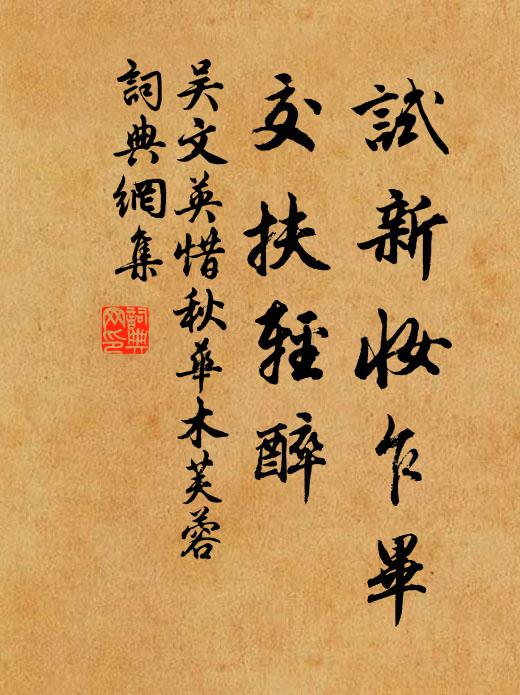 試新妝乍畢
交扶輕醉
吴文英惜秋華木芙蓉
詞典網集
詞典網印